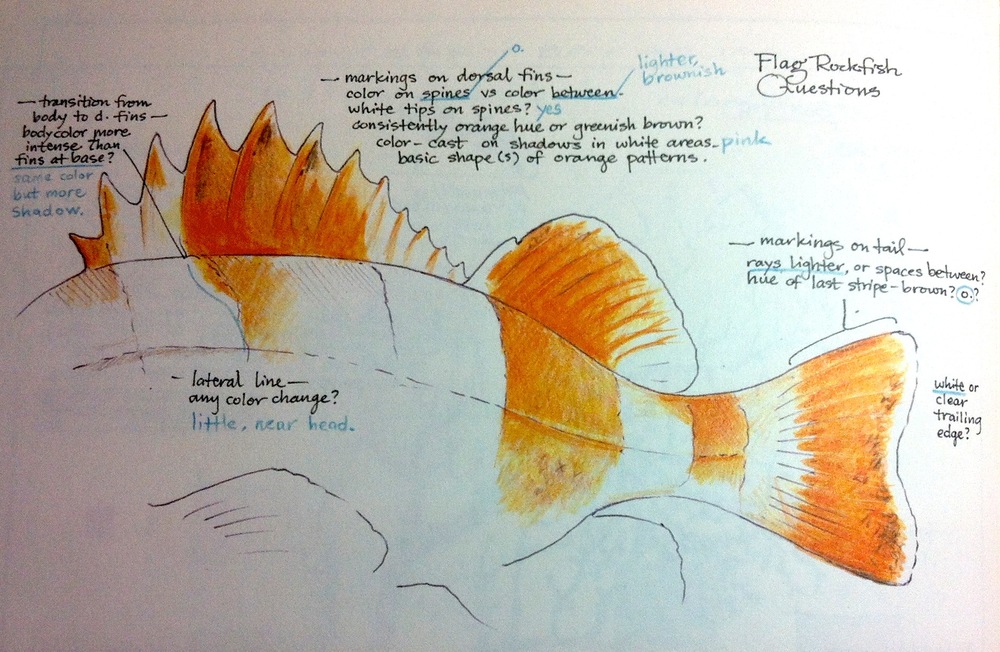 Flag Rockfish
Questions
— transition from
body to d. fins —
body color more
intense than
fins at base?
same color
but more
shadow.
o.
— markings on dorsal fins —
color on spines vs color between.
lighter,
brownish
white tips on spines? yes
consistently orange hue or greenish brown?
color-cast on shadows in white areas. pink
basic shape(s) of orange patterns.
— markings on tail —
rays lighter, or spaces between?
hue of last stripe - brown? o.?
- lateral line —
any color change?
little, near head.
white or
clear
trailing
edge?